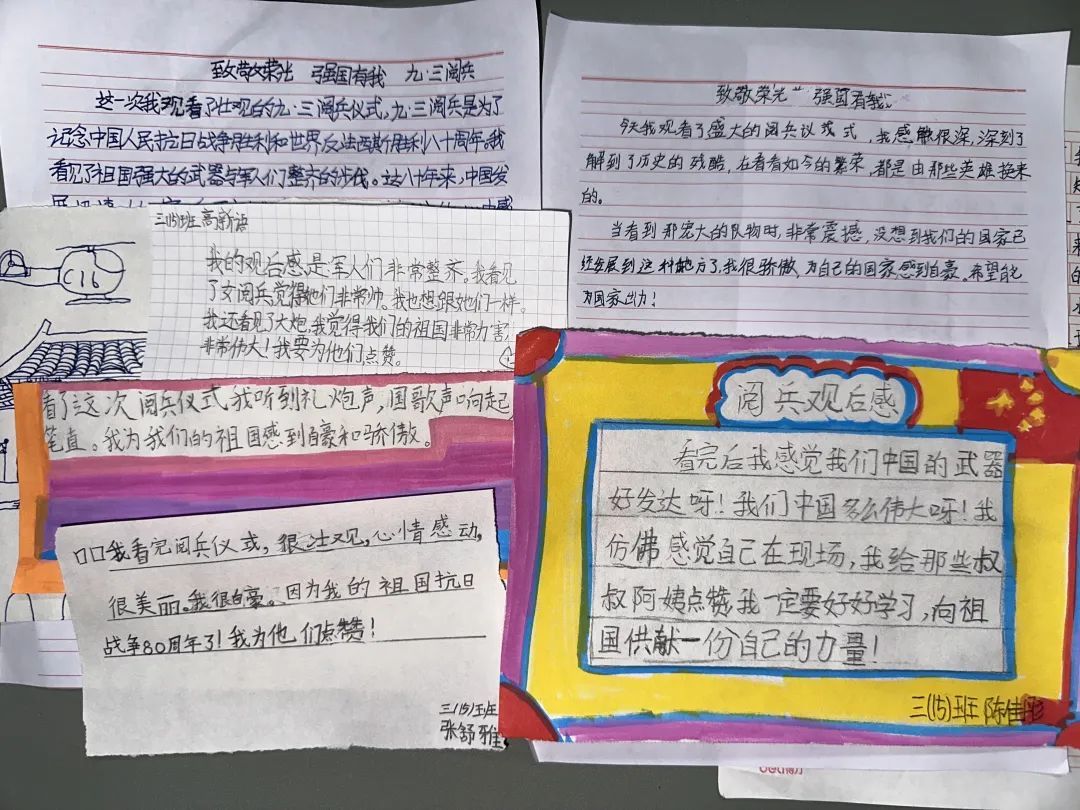 致敬荣光 强国有我 九·三阅兵
这一次我观看了壮观的九·三阅兵仪式,九·三阅兵是为了
记念中国人民抗日战争胜利和世界反法西斯胜利八十周年。我
看见了祖国强大的武器与军人们整齐的步伐。这八十年来,中国发
致敬荣光" 强国有我。
今天我观看了盛大的阅兵议式,我感触很深,深刻了
解到了历史的残酷,在看看如今的繁荣,都是由那些英雄换来
的。
当看到那宠大的队物时,非常震撼,没想到我们的国家已
经发展到这种地方了,我很骄傲,为自己的国家感到自豪。希望能
为国家出力!
三(15)班高
C16
我的观后感是军人们非常整齐。我看见
了女阅兵觉得她们非常帅。我也想跟她们一样。
我还看见了大炮,我觉得我们的祖国非常力害
非常伟大!我要为他们点赞。
看了这次阅兵仪式,我听到礼炮声,国歌声响起
笔直。我为我们的祖国感到自豪和骄傲。
口口我看完阅兵仪式,很壮观,心情感动,
很美丽。我很自豪。因为我的祖国抗日
战争80周年了!我为他们点赞!
三(15)班
张舒雅
阅兵观后感
看完后我感觉我们中国的武器
好发达呀!我们中国多么伟大呀!我
仿佛感觉自己在现场,我给那些叔
叔阿姨点赞,我一定要好好学习,向祖
国供献一份自己的力量!
三(15)班 陈佳彤